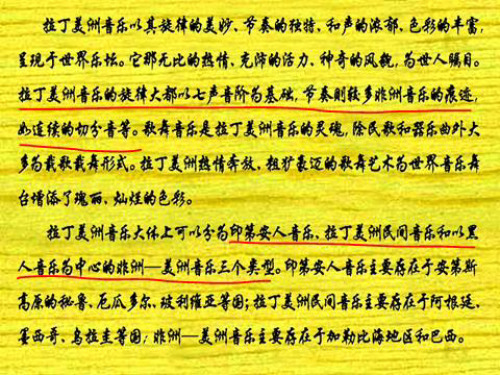 拉丁美洲音乐以其旋律的美妙、节奏的独特、和声的浓郁、色彩的丰富,
呈现于世界乐坛。它那无比的热情、充沛的活力、神奇的风貌,为世人瞩目。
拉丁美洲音乐的旋律大都以七声音阶为基础,节奏则较多非洲音乐的痕迹,
如连续的切分音等。歌舞音乐是拉丁美洲音乐的灵魂,除民歌和器乐曲外大
多为载歌载舞形式。拉丁美洲热情奔放、粗犷豪迈的歌舞艺术为世界音乐舞
台增添了瑰丽、灿烂的色彩。
拉丁美洲音乐大体上可以分为印第安人音乐、拉丁美洲民间音乐和以黑
人音乐为中心的非洲—美洲音乐三个类型。印第安人音乐主要存在于安第斯
高原的秘鲁、厄瓜多尔、玻利维亚等国;拉丁美洲民间音乐主要存在于阿根廷、
墨西哥、乌拉圭等国;非洲—美洲音乐主要存在于加勒比海地区和巴西。